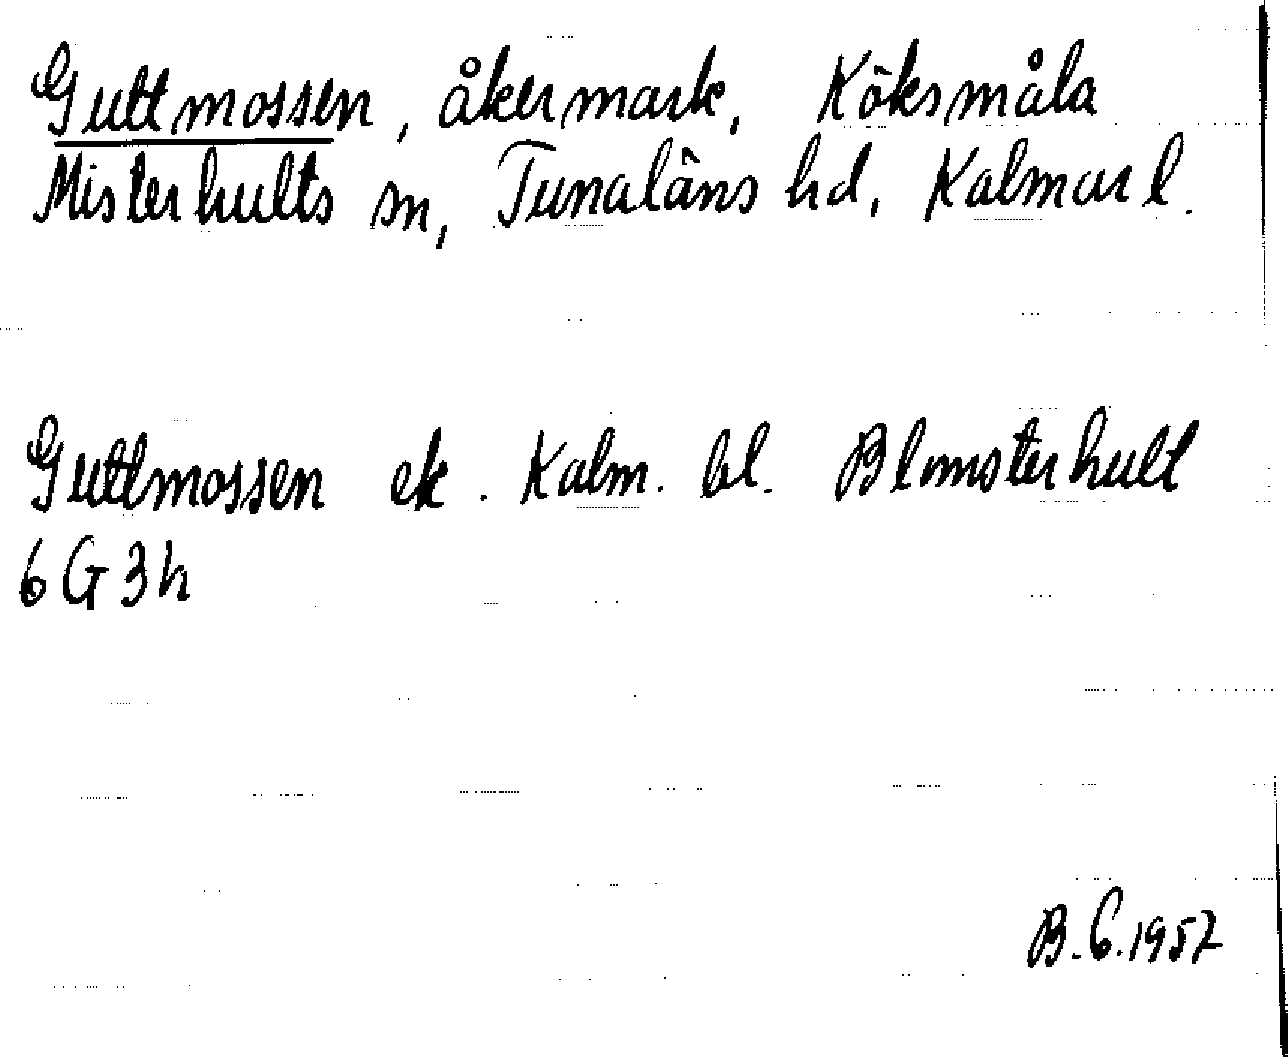 Guttmossen, åkermark, Köksmåla
Misterhults sn, Tunaläns hd, Kalmar l.
Guttmossen ek. Kalm. bl. Blomsterhult
6G3h
B.G.1957